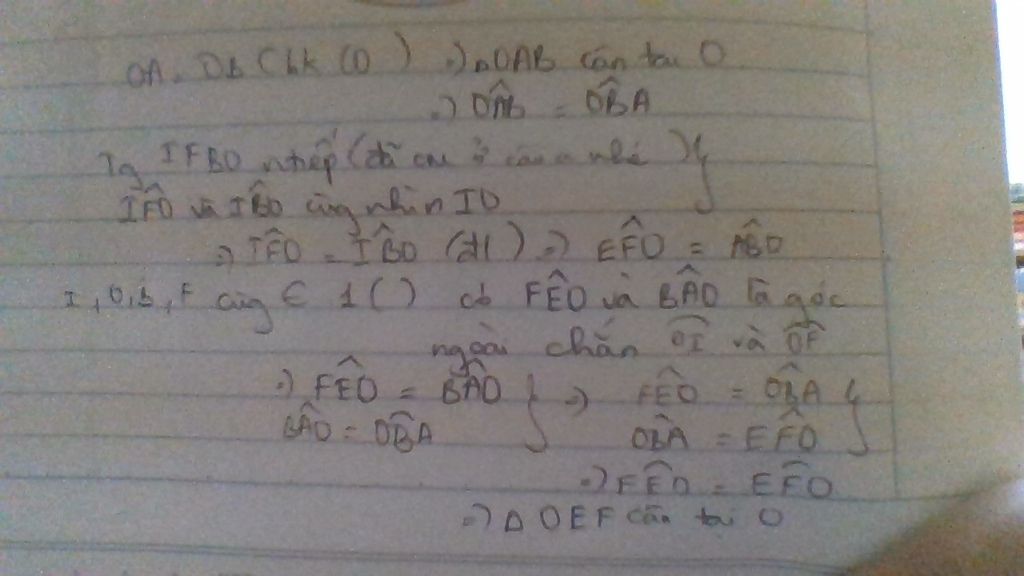 OA, OB (bk (O) ⇒ ΔOAB cân tại O
⇒ OÂB = OB̂A
Tg IFBO nhiếp (đã cm ở câu a nhé) }
IF̂O và IB̂O cùng nhìn IO
⇒ IF̂O = IB̂O (đl) ⇒ EF̂O = AB̂O
I, O, B, F cùng ∈ 1 () có FÊO và BÂO là góc
ngoài chắn OI và OF
⇒ FÊO = BÂO } ⇒ FÊO = OB̂A }
BÂO = OB̂A OB̂A = EF̂O
⇒ FÊO = EF̂O
⇒ Δ OEF cân tại O